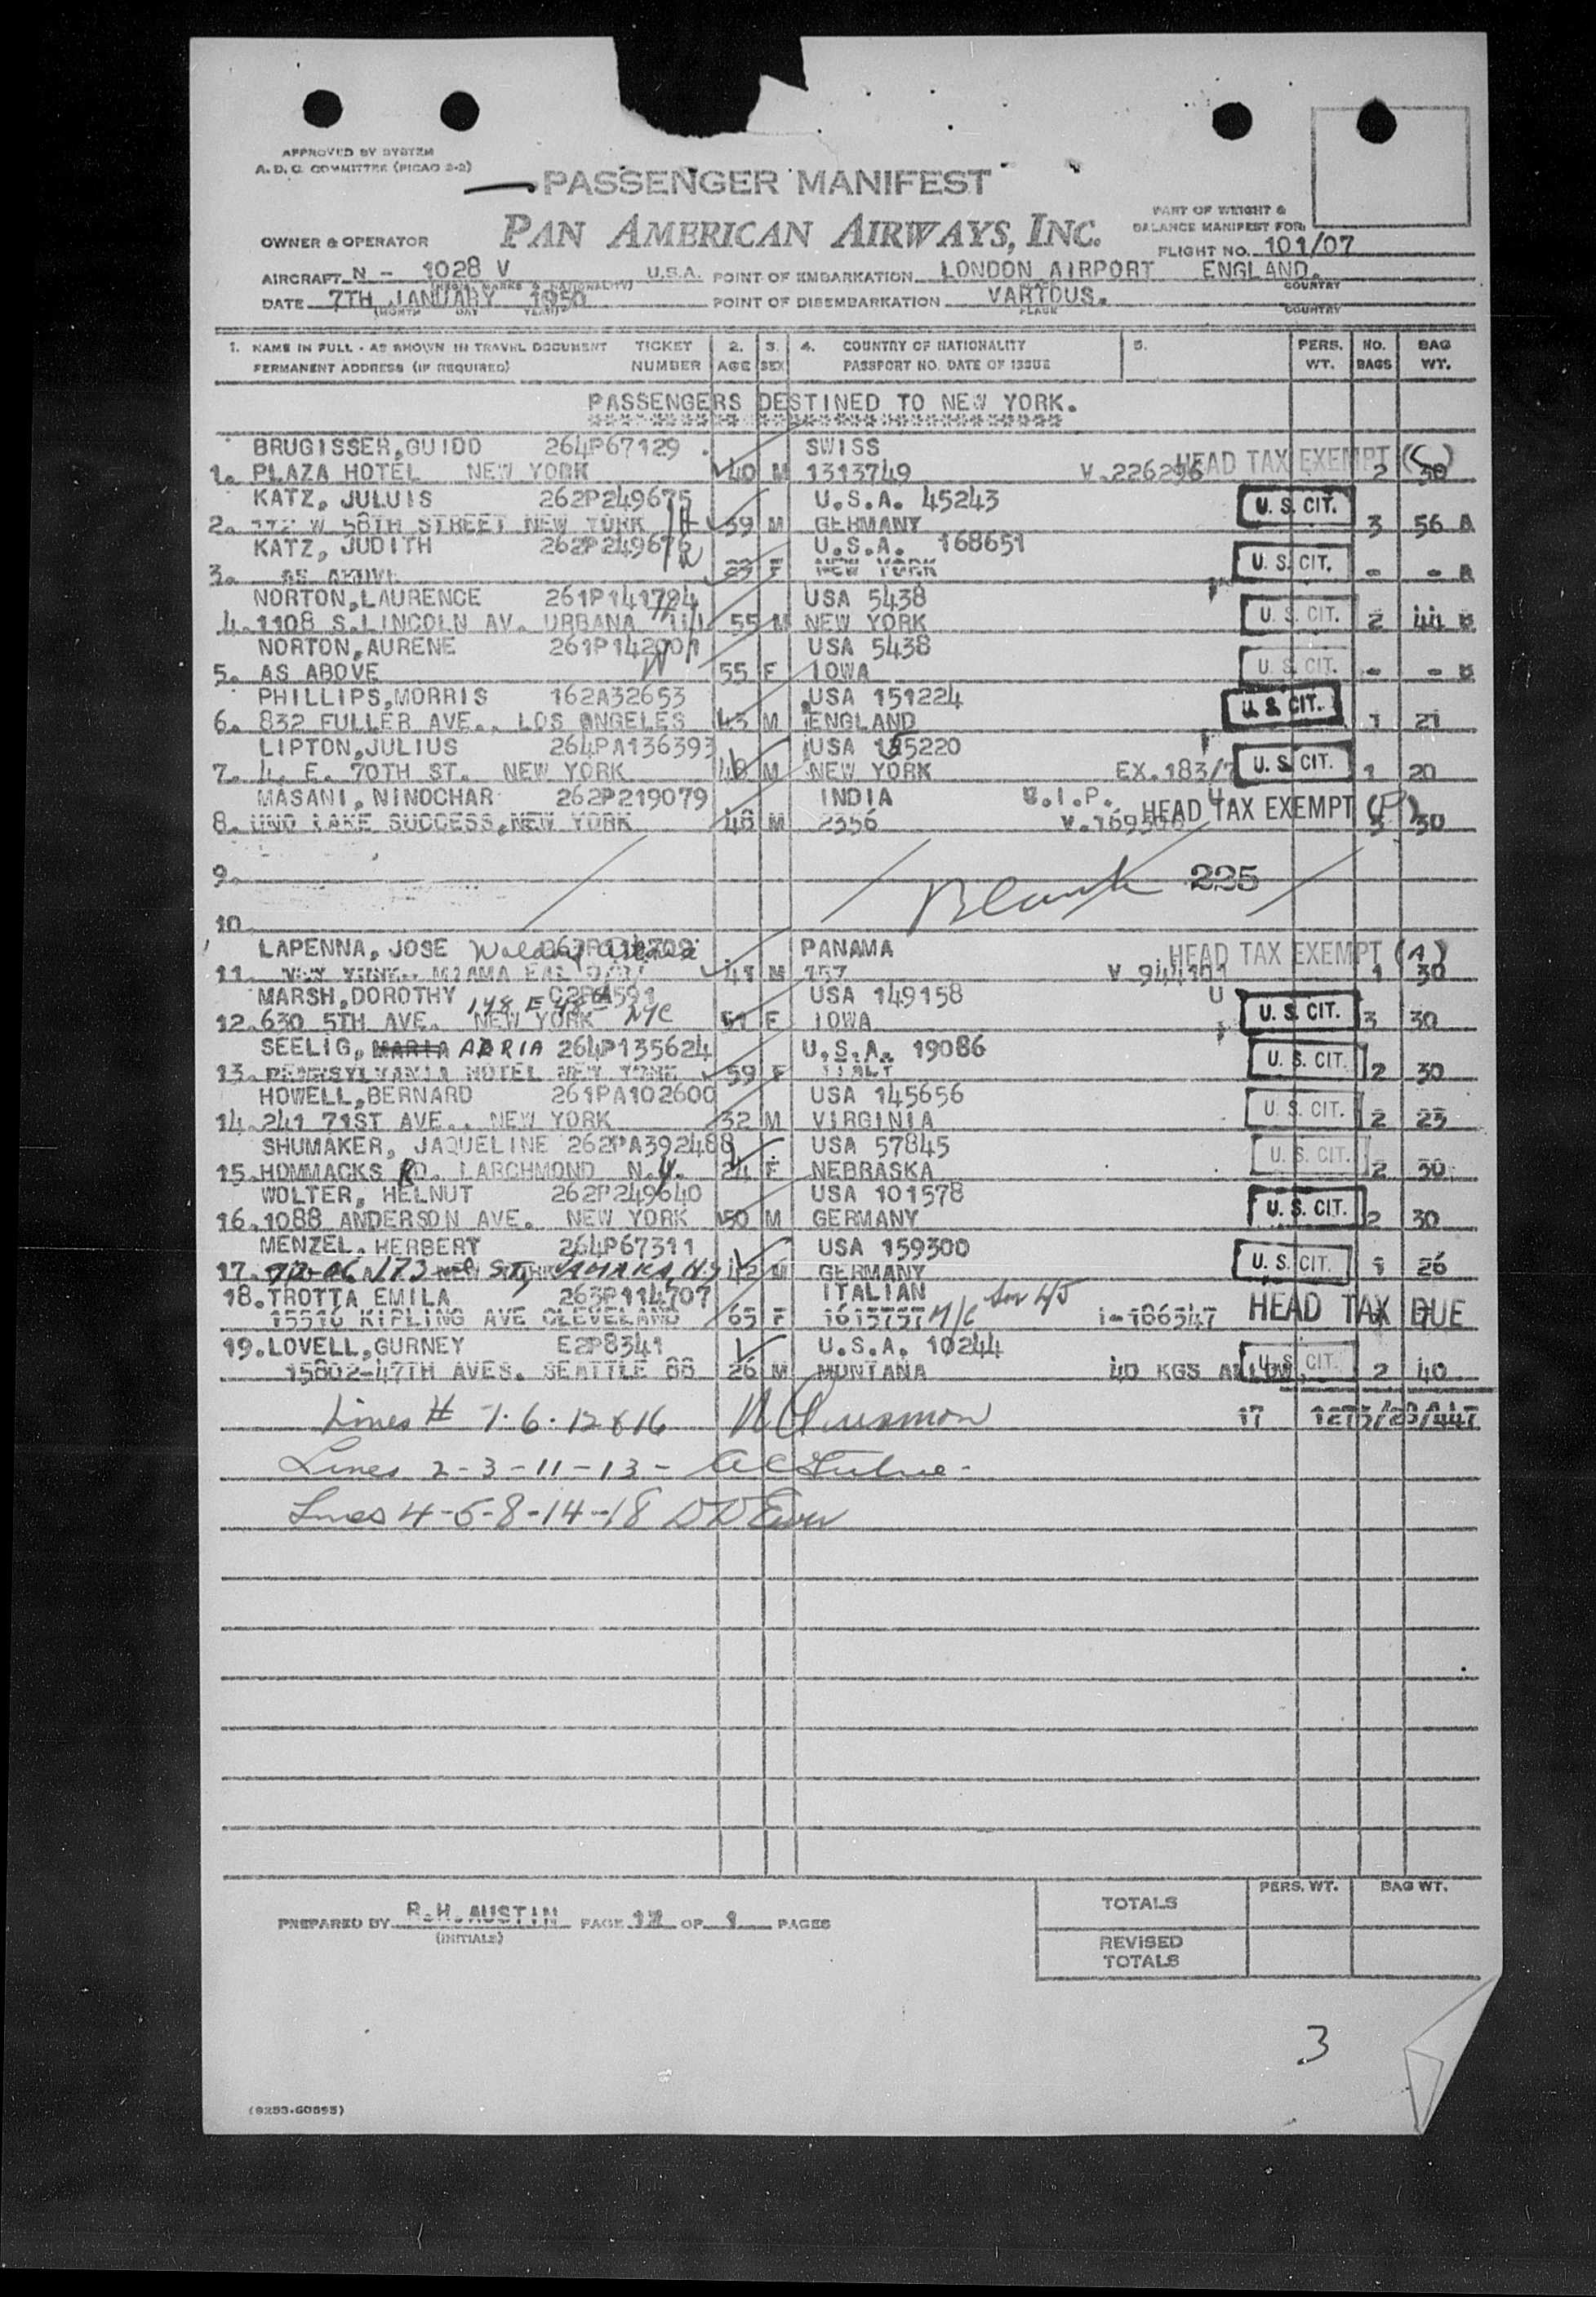 APPROVED BY SYSTEM
A.D.C. COMMITTEE (PICAO 2-2)
PASSENGER MANIFEST
PART OF WEIGHT &
BALANCE MANIFEST FOR:
OWNER & OPERATOR PAN AMERICAN AIRWAYS, INC.
FLIGHT NO. 101/07
AIRCRAFT N - 1028 V U.S.A. POINT OF EMBARKATION LONDON AIRPORT ENGLAND.
(REGIS. MARKS & NATIONALITY) COUNTRY
DATE 7TH JANUARY 1950 POINT OF DISEMBARKATION VARIOUS.
(MONTH DAY YEAR) PLACE COUNTRY
1. NAME IN FULL - AS SHOWN IN TRAVEL DOCUMENT TICKET 2. 3. 4. COUNTRY OF NATIONALITY 5. PERS. NO. BAG
PERMANENT ADDRESS (IF REQUIRED) NUMBER AGE SEX PASSPORT NO. DATE OF ISSUE WT. BAGS WT.
PASSENGERS DESTINED TO NEW YORK.
BRUGISSER,GUIDO 264P67129 SWISS HEAD TAX EXEMPT (C)
1. PLAZA HOTEL NEW YORK 40 M 1313749 V.226296 2 30
KATZ, JULUIS 262P249675 U.S.A. 45243 U. S. CIT.
2. W 58TH STREET NEW YORK 39 M GERMANY 3 56 A
KATZ, JUDITH 262P249676 U.S.A. 168651 U. S. CIT.
3. AS ABOVE 23 F NEW YORK - - A
NORTON,LAURENCE 261P141794 USA 5438 U. S. CIT.
4. 1108 S.LINCOLN AV. URBANA Ill 55 M NEW YORK 2 44 B
NORTON,AURENE 261P142001 USA 5438 U. S. CIT.
5. AS ABOVE 55 F IOWA - - B
PHILLIPS,MORRIS 162A32653 USA 151224 U. S. CIT.
6. 832 FULLER AVE., LOS ANGELES 43 M ENGLAND 1 21
LIPTON,JULIUS 264PA136393 USA 155220 U. S. CIT.
7. 4. E. 70TH ST. NEW YORK 48 M NEW YORK EX.183/7 1 20
MASANI, NINOCHAR 262P219079 INDIA V.I.P. HEAD TAX EXEMPT (P)
8. UNO LAKE SUCCESS,NEW YORK 48 M 2356 3 30
9. Blank 225
10.
LAPENNA, JOSE PANAMA HEAD TAX EXEMPT (A)
11. NEW YORK. 41 M 157 V 944101 1 30
MARSH,DOROTHY 148 E 48 USA 149158 U U. S. CIT.
12. 630 5TH AVE. NEW YORK NYC 51 F IOWA 3 30
SEELIG, MARIA ADRIA 264P135624 U.S.A. 19086 U. S. CIT.
13. PENNSYLVANIA HOTEL NEW YORK 59 F ITALY 2 30
HOWELL,BERNARD 261PA102600 USA 145656 U. S. CIT.
14. 241 71ST AVE.. NEW YORK 32 M VIRGINIA 2 23
SHUMAKER, JAQUELINE 262PA392488 USA 57845 U. S. CIT.
15. HOMMACKS RD. LARCHMOND N.Y. 24 F NEBRASKA 2 30
WOLTER, HELNUT 262P249640 USA 101578 U. S. CIT.
16. 1088 ANDERSON AVE. NEW YORK 50 M GERMANY 2 30
MENZEL, HERBERT 264P67311 USA 159300 U. S. CIT.
17. 173 ST, JAMAICA, NY 42 M GERMANY 1 26
18. TROTTA EMILA 263P114707 ITALIAN
15516 KIPLING AVE CLEVELAND 65 F 1615757 M/C I-186547 HEAD TAX DUE
19. LOVELL,GURNEY E2P8341 U.S.A. 10244 U. S. CIT.
15802-47TH AVES. SEATTLE 88 26 M MONTANA 40 KGS ALLOW. 2 40
Lines # 7. 6. 12 & 16 17 1275/28/447
Lines 2-3-11-13-
Lines 4-5-8-14-18
PREPARED BY R.H.AUSTIN PAGE OF 1 PAGES
(INITIALS)
PERS. WT. BAG WT.
TOTALS
REVISED
TOTALS
3